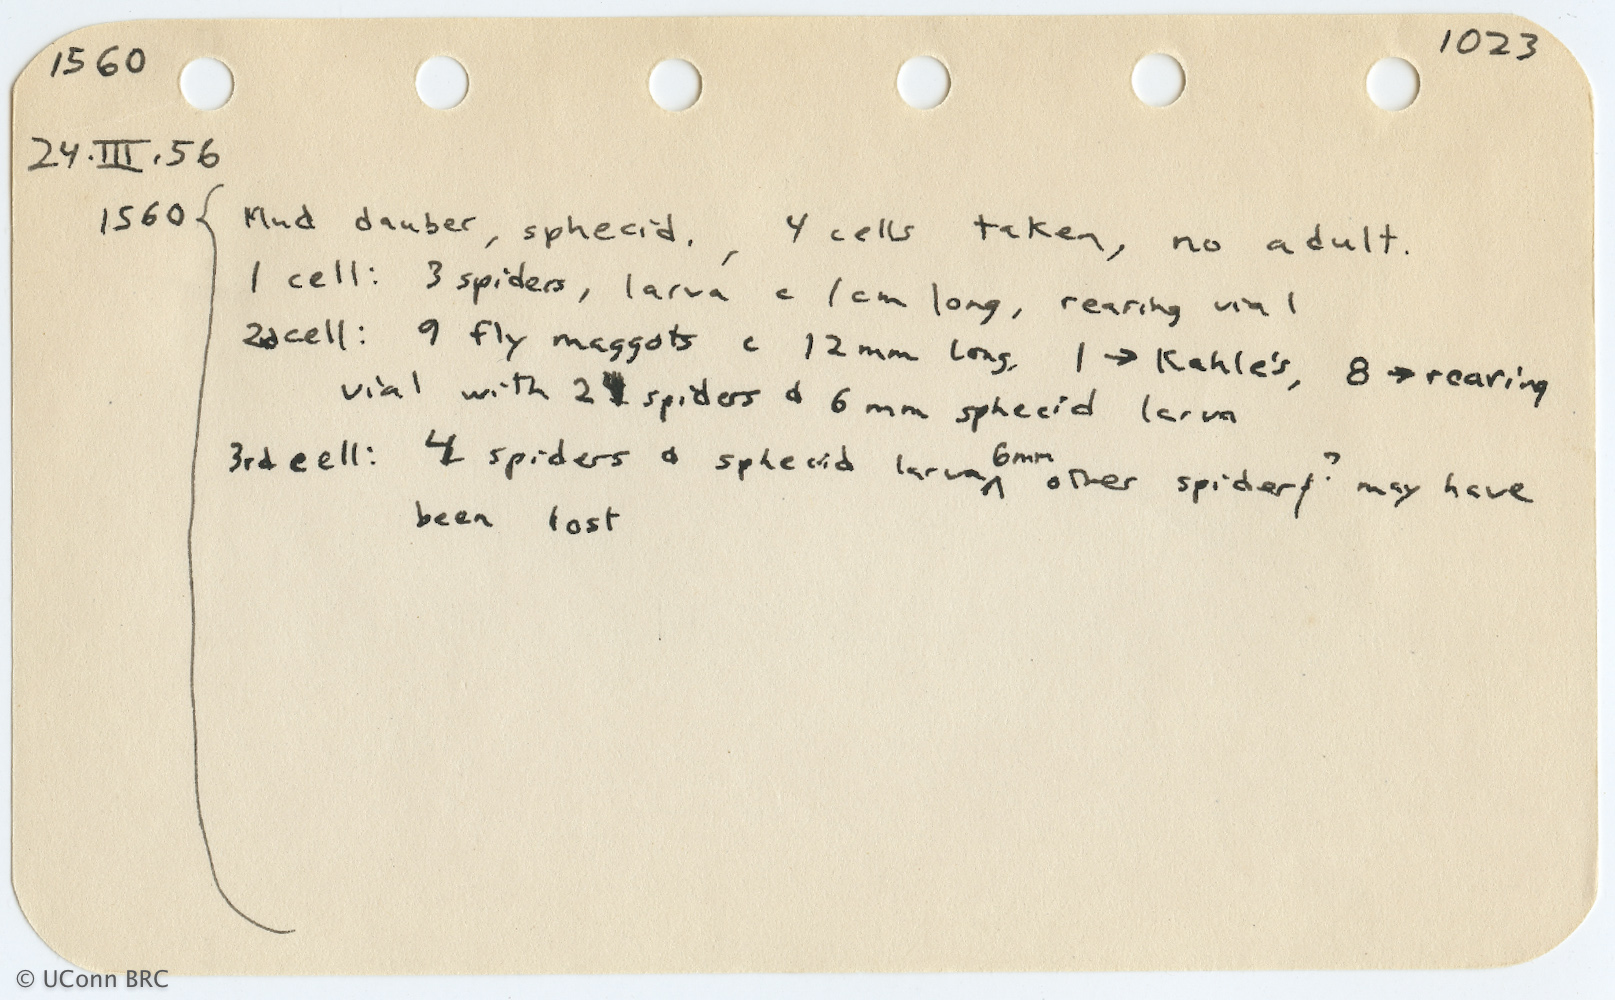 1560 1023
24.III.56
1560 { Mud dauber, sphecid, , 4 cells taken, no adult.
1 cell: 3 spiders, larva c 1cm long, rearing vial
2d cell: 9 fly maggots c 12mm long, 1 → Kahle's, 8 → rearing
vial with 2 spiders & 6 mm sphecid larva
3rd cell: 4 spiders & sphecid larva ^6mm other spiders? may have
been lost
© UConn BRC